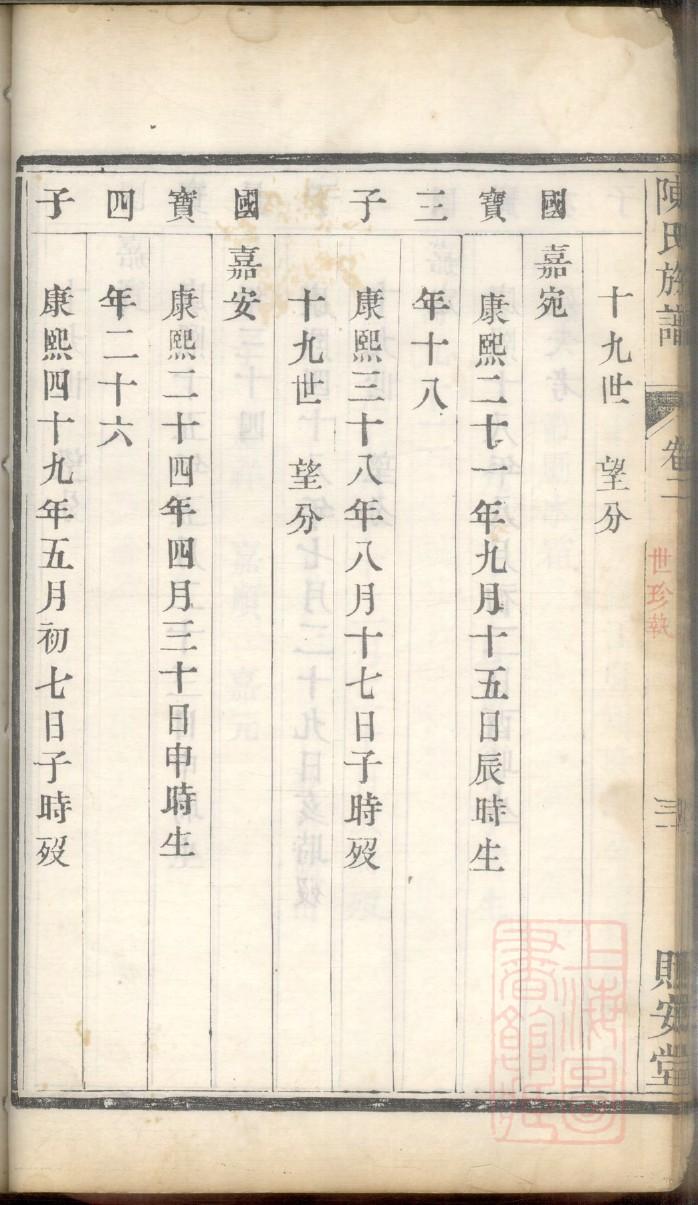 陳氏族譜 卷二 世珍執 三 安堂
十九世 望分
國 嘉宛
寶 康熙二十一年九月十五日辰時生
三 年十八
子 康熙三十八年八月十七日子時歿
十九世 望分
國 嘉安
寶 康熙二十四年四月三十日申時生
四 年二十六
子 康熙四十九年五月初七日子時歿
上海圖書館藏